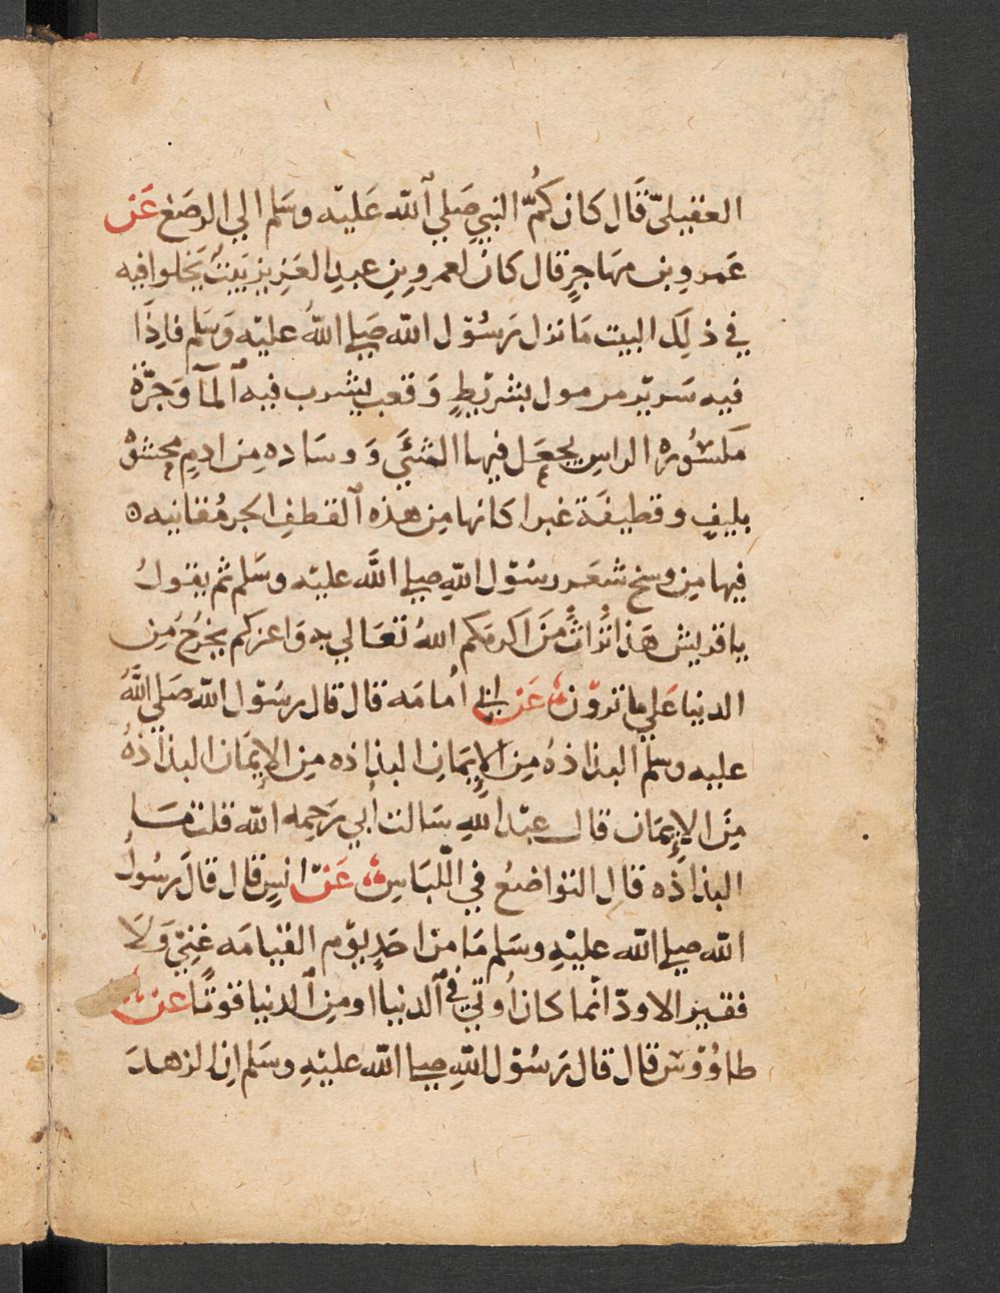 العقيلىّ قَال كان كُمُّ النبيِ صَلي ٱللّه عَليْه وسَلم الي الرصَغ عَن
عَمر وبن مهَاجرٍ قال كان لعمر وبن عبدِ العَزيز بَيتٌ يَخلوا فيه
في ذلِكَ البيت مَا نزل رَسُوْل اللّه صَلي اللّهُ عليْه وَسَلم فاِذَا
فيه سَريْر مرمول بشريْطٍ وَقعب يشرب فيه ٱلمآ وَجرّة
مكسُوره الراسِ يجعَل فيها الشئَ وَوسَاده مِن ادمٍ محشوّة
بليفٍ وقطيفَة غبرا كانها مِن هذه ٱلقطفِ الجرمُقانيه ه
فيها مِن وسخ شعَر رسُوْل اللّهِ صلي اللَّه عليْه وسَلم ثم يقولُ
يا قريش هَذا تُراثُ مَن اكرمَكم اللهُ تعَالي به وَاعزكم يخرُجُ مِن
الدنيا عَلي ما تروْن عَن ابي اُمامَه قال قال رسُوْل اللّه صَلي اللَّهُ
عليه وسلم البذاذهُ مِن الاِيمَانِ البذاذه مِن الاِيمَان البذاذهُ
مِنَ الاِيمَان قال عبْد اللهِ سَالت اُبي رَحِمه اللّه قلت مَا
البذاذه قال التواضعُ في اللّبَاسِ عَنْ انسٍ قال قالَ رَسُولُ
اللّه صلي اللّه عليْهِ وسَلم مَا من احَدٍ يوْم القيَامَه غنِيّ وَلَا
فقير الا ودّ انّما كان اُوتي في ٱلدنيا او مِن ٱلدنيا قوتًا عن
طاوُوْس قال قال رَسُوْل اللّهِ صلي اللّه عليْهِ وسَلم اِن الزهدَ